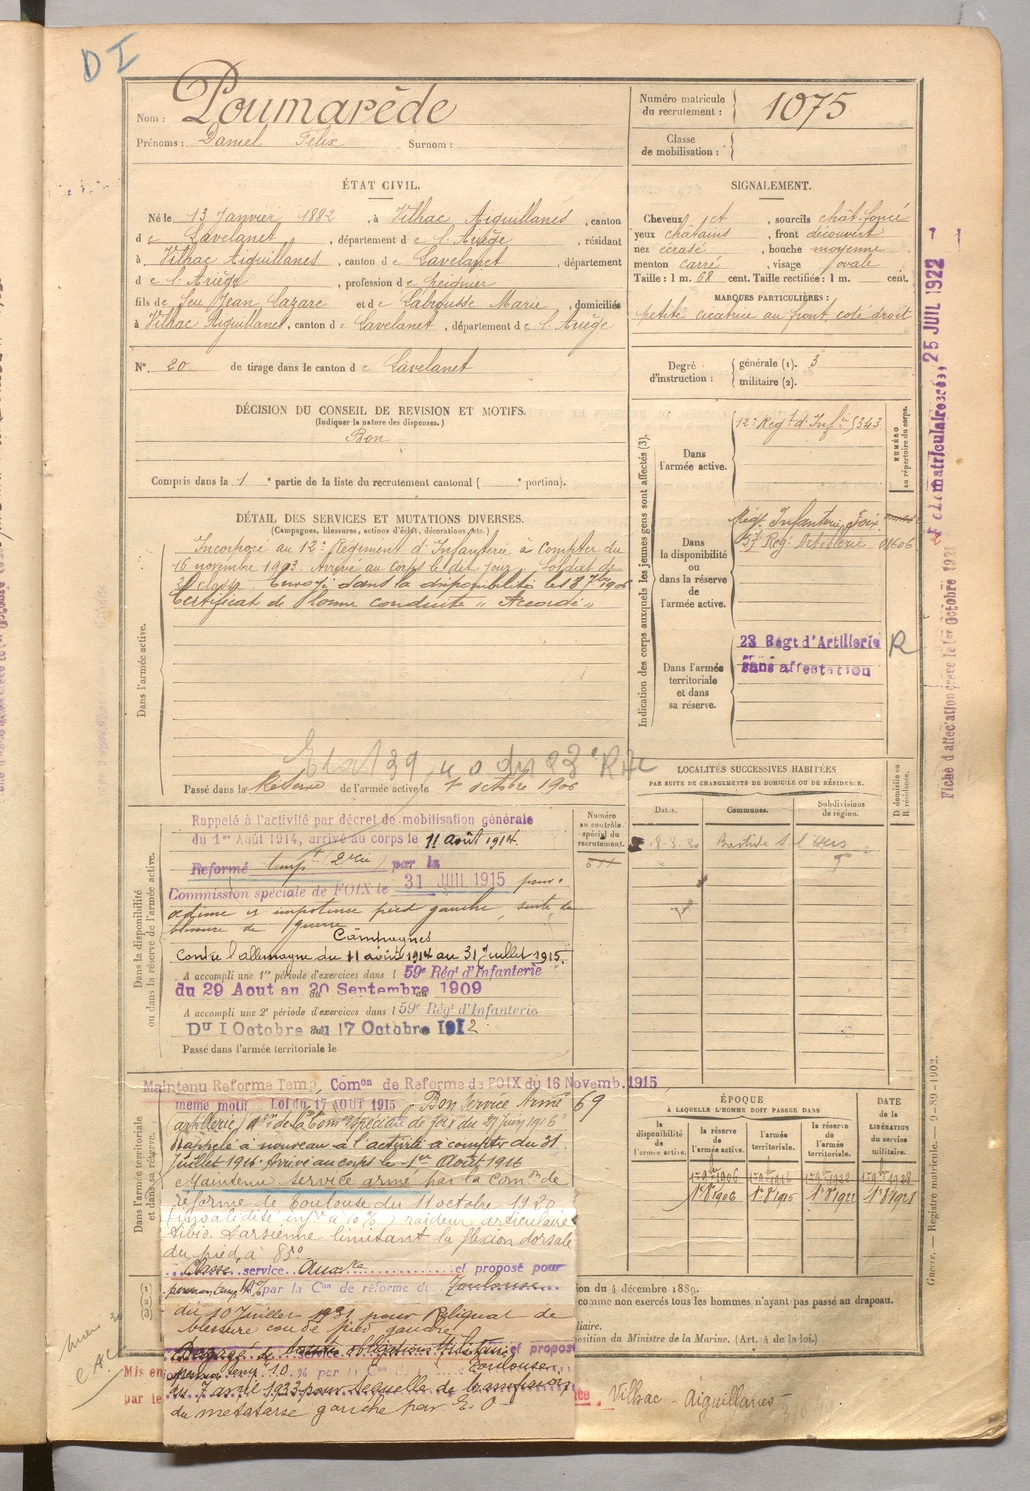 DI
Nom : Poumarède
Prénoms : Daniel Félix Surnom :
Numéro matricule du recrutement : 1075
Classe de mobilisation :
ÉTAT CIVIL.
Né le 13 Janvier 1882, à Vilhac Aiguillanes, canton
de Lavelanet, département de l'Ariège, résidant
à Vilhac Aiguillanes, canton de Lavelanet, département
de l'Ariège, profession de Peignier
fils de feu Jean Lazare et de Labrousse Marie, domiciliés
à Vilhac Aiguillanes, canton de Lavelanet, département de l'Ariège
N° 20 de tirage dans le canton de Lavelanet
SIGNALEMENT.
Cheveux et, sourcils chât. foncé
yeux châtains, front découvert
nez écrasé, bouche moyenne
menton carré, visage ovale
Taille : 1 m. 68 cent. Taille rectifiée : 1 m. cent.
MARQUES PARTICULIÈRES :
petite cicatrice au front, coté droit
Degré d'instruction : générale (1). 3
militaire (2).
DÉCISION DU CONSEIL DE REVISION ET MOTIFS.
(Indiquer la nature des dispenses.)
Bon
Compris dans la 1e partie de la liste du recrutement cantonal ( e portion).
DÉTAIL DES SERVICES ET MUTATIONS DIVERSES.
(Campagnes, blessures, actions d'éclat, décorations, etc.)
Dans l'armée active.
Incorporé au 12e Régiment d'Infanterie à compter du
16 novembre 1903. Arrivé au corps le dit jour. Soldat de
2e classe. Envoyé dans la disponibilité le 18 7bre 1906
Certificat de Bonne conduite "Accordé"
Passé dans la Réserve de l'armée active le 1er octobre 1906
Indication des corps auxquels les jeunes gens sont affectés (3).
NUMÉRO au répertoire du corps.
Dans l'armée active.
12e Régt d'Infie 5343
Dans la disponibilité ou dans la réserve de l'armée active.
Régt Infanterie Foix
57 Rég Artillerie 01606
Dans l'armée territoriale et dans sa réserve.
23 Régt d'Artillerie R
sans affectation
25 JUIL 1922
Fiche d'affectation créée le 1er Octobre 1921
LOCALITÉS SUCCESSIVES HABITÉES
PAR SUITE DE CHANGEMENTS DE DOMICILE OU DE RÉSIDENCE.
Dates. Communes. Subdivisions de région. D domicile ou R résidence.
Dans la disponibilité ou dans la réserve de l'armée active.
Numéro au contrôle spécial du recrutement.
Rappelé à l'activité par décret de mobilisation générale
du 1er Août 1914, arrivé au corps le 11 août 1914.
Réformé tempre par la
Commission spéciale de FOIX le 31 JUIL 1915 pour
œdème et impotence pied gauche, suite de
blessure de guerre
Campagnes
Contre l'allemagne du 11 août 1914 au 31 Juillet 1915.
A accompli une 1re période d'exercices dans l 59e Régt d'Infanterie
du 29 Aout au 20 Septembre 1909
A accompli une 2e période d'exercices dans l 59e Régt d'Infanterie
Du 1 Octobre au 17 Octobre 1912
Passé dans l'armée territoriale le
Dans l'armée territoriale et dans sa réserve.
Maintenu Réformé Temp. Comon de Réforme de FOIX du 16 Novemb. 1915
même motif Loi du 17 AOUT 1915 - Bon Service Armé 69
artillerie, de la Comon spéciale de Foix du 27 juin 1916
Rappelé à nouveau à l'activité à compter du 31
Juillet 1916. Arrivé au corps le 1er Août 1916
Maintenu service armé par la Comon de
réforme de Toulouse du 11 octobre 1920
(invalidité infre à 10 %) raideur articulaire
tibio-tarsienne limitant la flexion dorsale
du pied à 85°
Classé service Auxre et proposé pour
par la Con de réforme de Toulouse
du 10 Juillet 1931 pour Reliquat de
blessure cou de pied gauche
Dégagé de toutes obligations Militaires
du 7 avril 1933 pour séquelle de
du métatarse gauche par E. O
ÉPOQUE
À LAQUELLE L'HOMME DOIT PASSER DANS
la disponibilité de l'armée active. la réserve de l'armée active. l'armée territoriale. la réserve de l'armée territoriale.
DATE de la LIBÉRATION du service militaire.
1er 8bre 1906
(1)
(2)
(3)
du 4 décembre 1889.
comme non exercés tous les hommes n'ayant pas passé au drapeau.
liaire.
position du Ministre de la Marine. (Art. 4 de la loi.)
Mis en
par le
Vilhac - Aiguillanes
Guerre. — Registre matricule. — 9-89-1902.